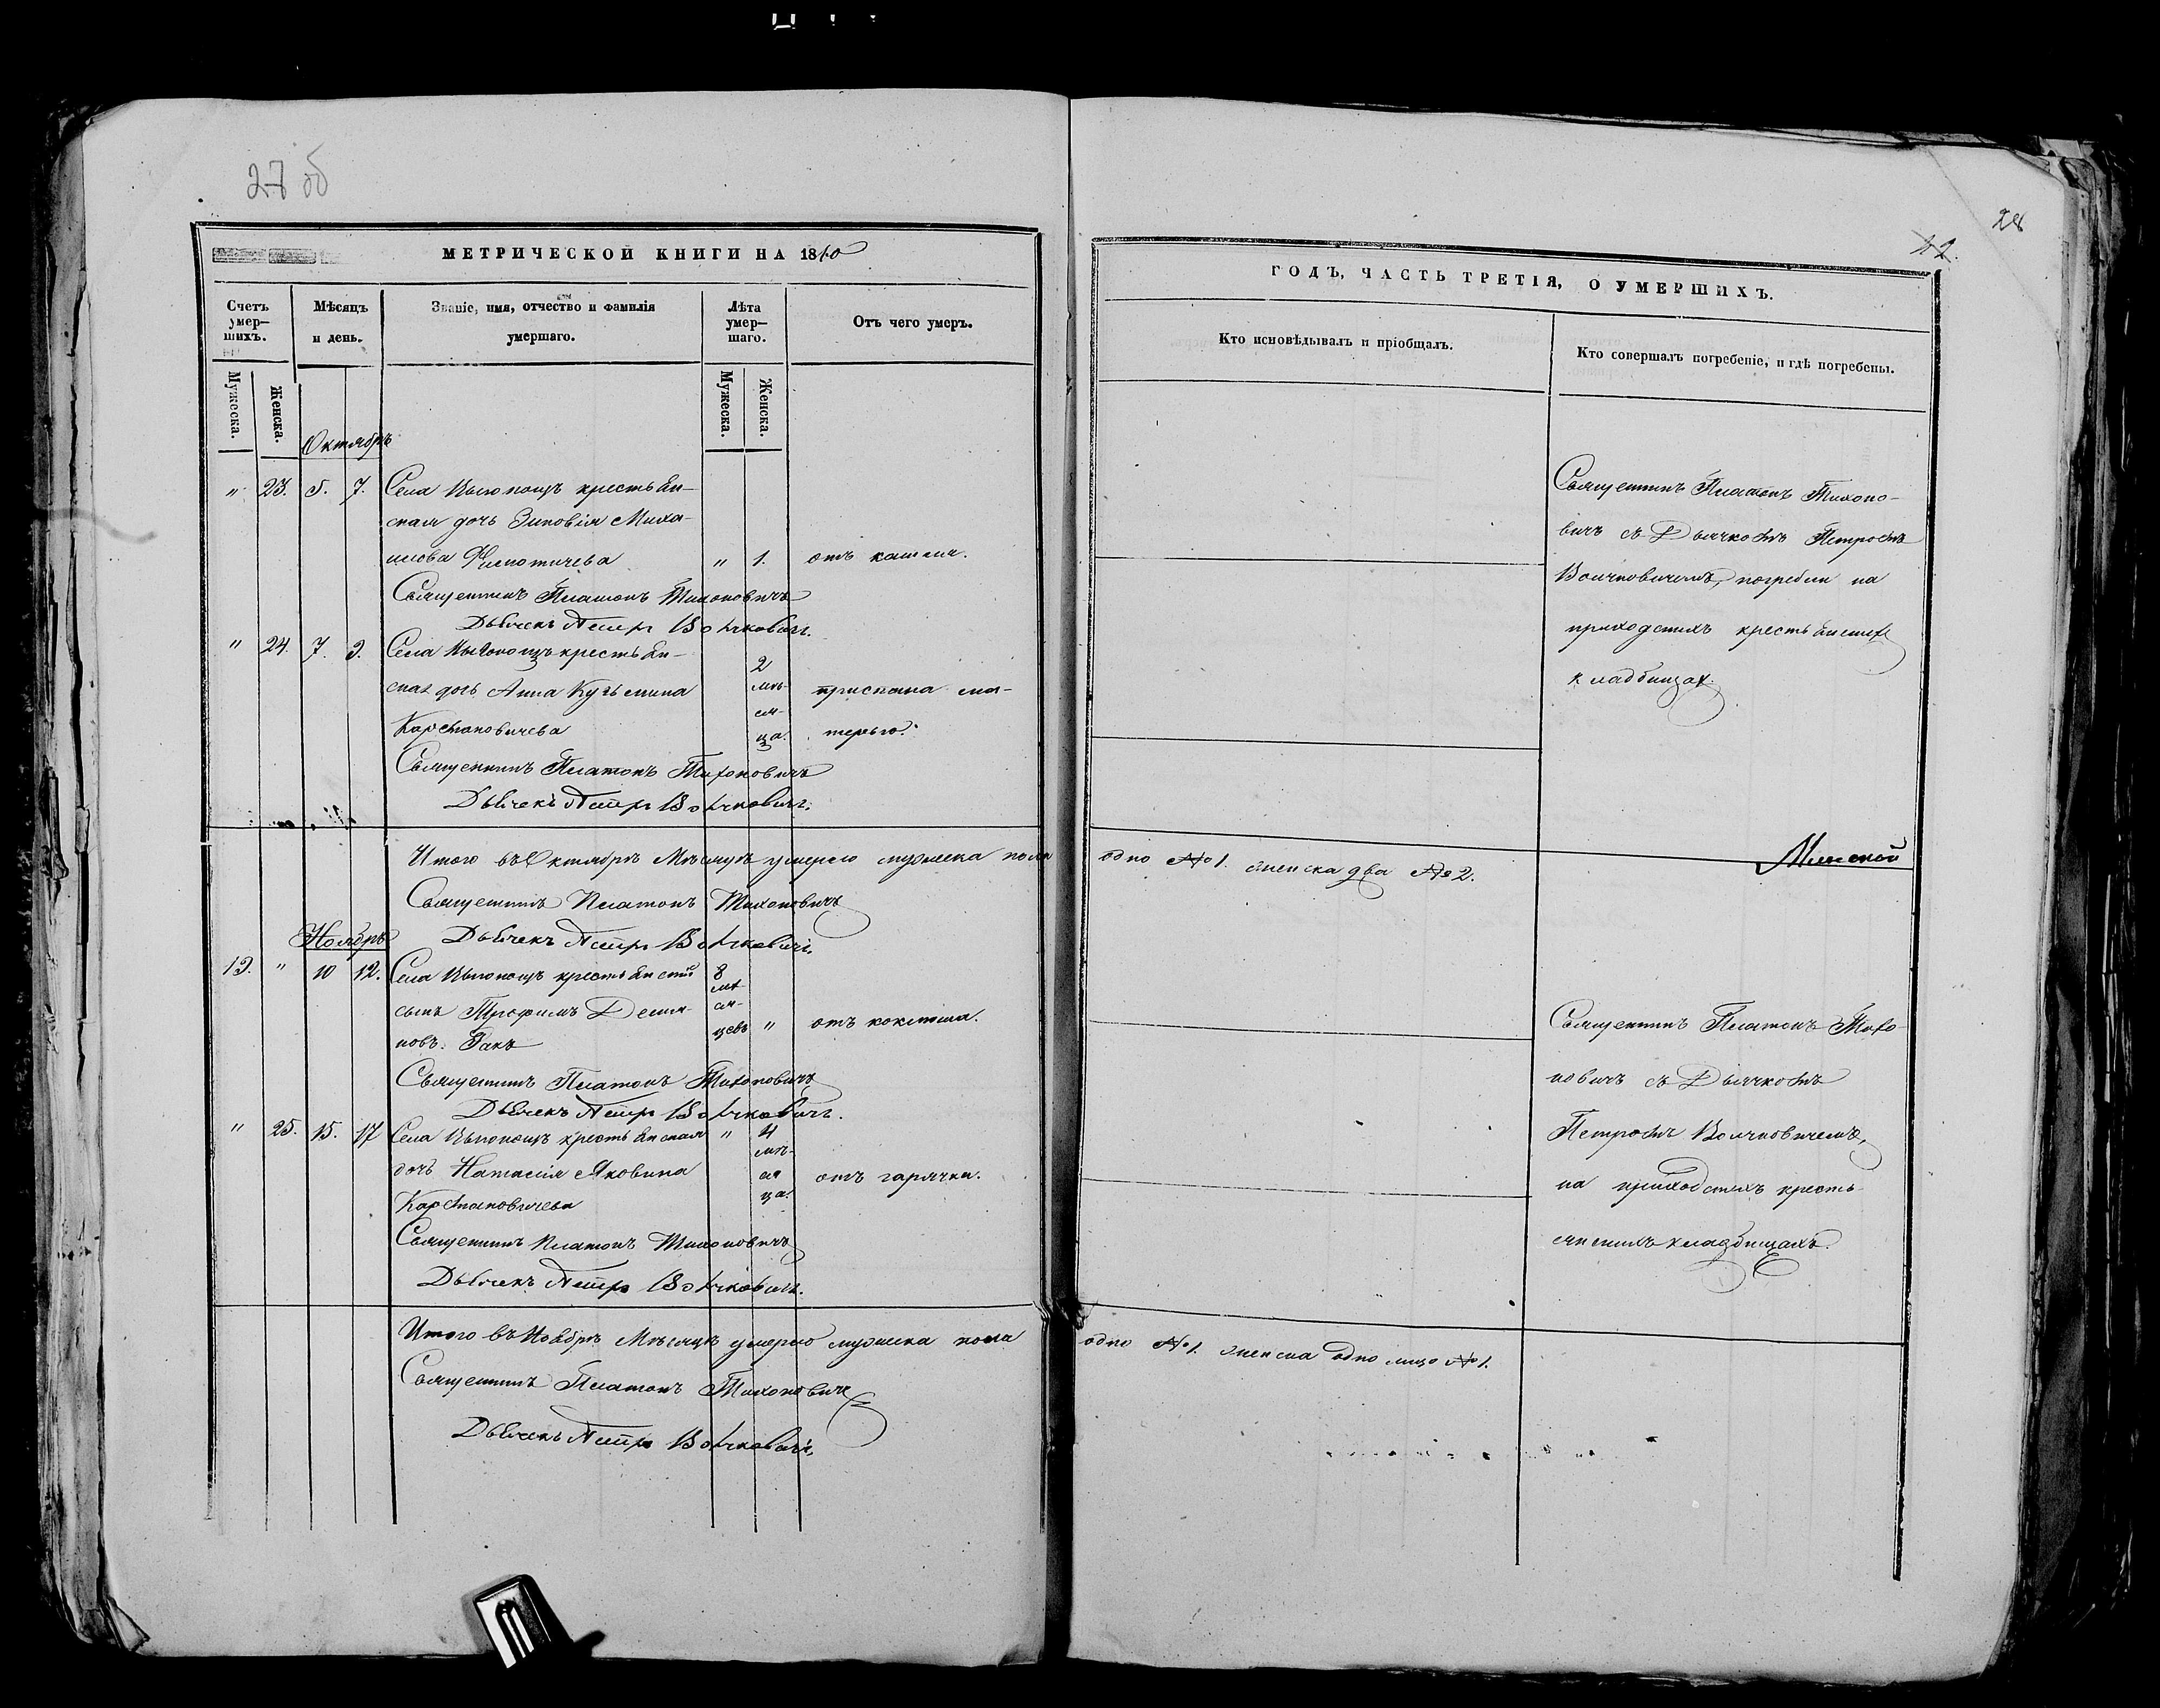 27 об
МЕТРИЧЕСКОЙ КНИГИ НА 1840
Счетъ умер-шихъ.
Мѣсяцъ и день.
Званіе, имя, отчество и фамилія умершаго.
Лѣта умер-шаго.
Отъ чего умеръ.
Мужеска.
Женска.
Мужеска.
Женска.
Октябрь
" 23. 5. 7. Села крестьян-
ская дочь Зиновія Миха-
илова " 1. отъ кашля.
Священникъ Платонъ Тихоновичъ
Дьячекъ Петръ Волчковичъ.
" 24. 7. 9. Села крестьян-
ская дочь Анна Кузьмина 2 мѣ- приспана ма-
ся-
ца. терью.
Священникъ Платонъ Тихоновичъ
Дьячекъ Петръ Волчковичъ.
Итого въ Октябрѣ Мѣсяцѣ умерло мужеска пола
Священникъ Платонъ Тихоновичъ
Дьячекъ Петръ Волчковичъ.
Ноябрь
19. " 10 12. Села крестьянскій 8
сынъ Трофимъ Демья- мѣ-
ся-
новъ. Гакъ цевъ " отъ коклюша.
Священникъ Платонъ Тихоновичъ
Дьячекъ Петръ Волчковичъ.
" 25. 15. 17 Села крестьянская " 4
дочь Наталія Яковина мѣ-
ся отъ горячки.
ца.
Священникъ Платонъ Тихоновичъ
Дьячекъ Петръ Волчковичъ.
Итого въ Ноябрѣ Мѣсяцѣ умерло мужеска пола
Священникъ Платонъ Тихоновичъ
Дьячекъ Петръ Волчковичъ.
28
42.
ГОДЪ, ЧАСТЬ ТРЕТІЯ, О УМЕРШИХЪ.
Кто исповѣдывалъ и пріобщалъ.
Кто совершалъ погребеніе, и гдѣ погребены.
Священникъ Платонъ Тихоно-
вичъ съ Дьячкомъ Петромъ
Волчковичемъ, погребли на
приходскихъ крестьянскихъ
кладбищахъ.
одно №1. женска два №2.
Минской
Священникъ Платонъ Тихо-
новичъ съ Дьячкомъ
Петромъ Волчковичемъ,
на приходскихъ кресть-
янскихъ кладбищахъ.
одно №1. женска одно лицо №1.